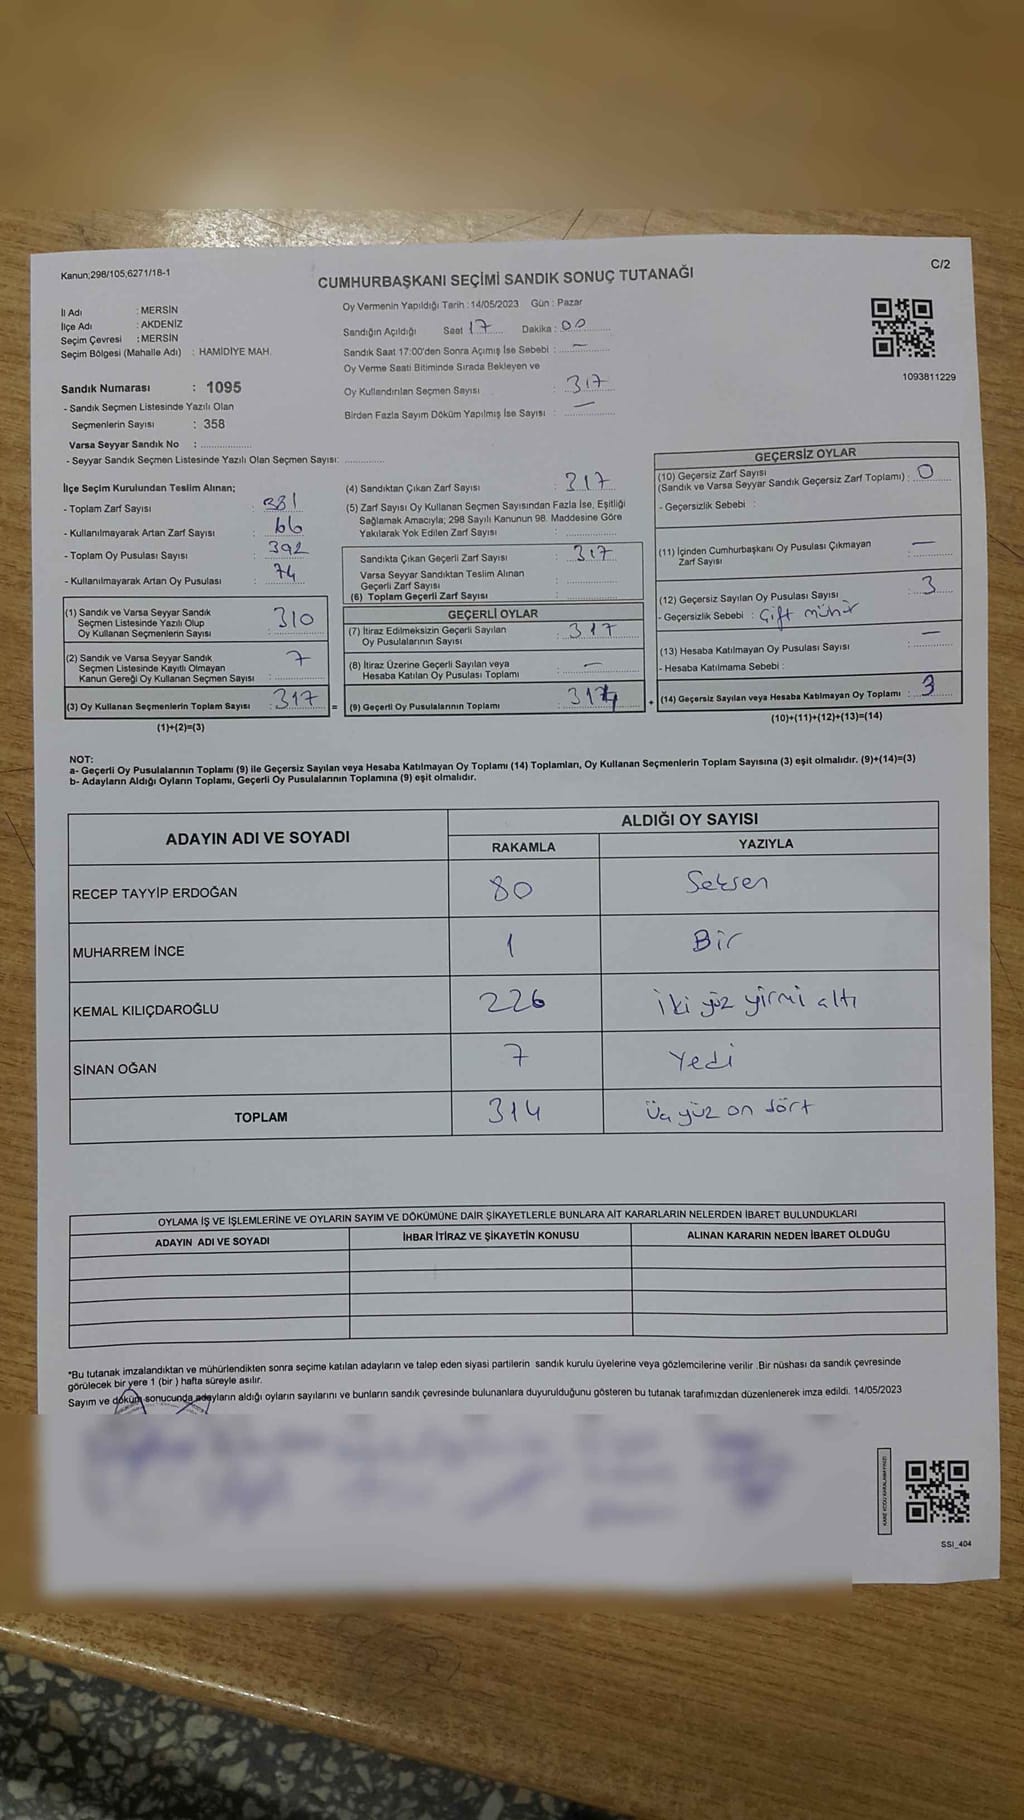 Kanun;298/105;6271/18-1
C/2
CUMHURBAŞKANI SEÇİMİ SANDIK SONUÇ TUTANAĞI
İl Adı : MERSİN
İlçe Adı : AKDENİZ
Seçim Çevresi : MERSİN
Seçim Bölgesi (Mahalle Adı) : HAMİDİYE MAH.
Sandık Numarası : 1095
- Sandık Seçmen Listesinde Yazılı Olan
Seçmenlerin Sayısı : 358
Varsa Seyyar Sandık No :
- Seyyar Sandık Seçmen Listesinde Yazılı Olan Seçmen Sayısı:
Oy Vermenin Yapıldığı Tarih : 14/05/2023 Gün : Pazar
Sandığın Açıldığı Saat 17 Dakika : 00
Sandık Saat 17:00'den Sonra Açılmış İse Sebebi : —
Oy Verme Saati Bitiminde Sırada Bekleyen ve
Oy Kullandırılan Seçmen Sayısı : 317
Birden Fazla Sayım Döküm Yapılmış İse Sayısı : —
1093811229
İlçe Seçim Kurulundan Teslim Alınan;
- Toplam Zarf Sayısı : 381
- Kullanılmayarak Artan Zarf Sayısı : 66
- Toplam Oy Pusulası Sayısı : 392
- Kullanılmayarak Artan Oy Pusulası : 74
(1) Sandık ve Varsa Seyyar Sandık
Seçmen Listesinde Yazılı Olup
Oy Kullanan Seçmenlerin Sayısı : 310
(2) Sandık ve Varsa Seyyar Sandık
Seçmen Listesinde Kayıtlı Olmayan
Kanun Gereği Oy Kullanan Seçmen Sayısı : 7
(3) Oy Kullanan Seçmenlerin Toplam Sayısı : 317
(1)+(2)=(3)
(4) Sandıktan Çıkan Zarf Sayısı : 317
(5) Zarf Sayısı Oy Kullanan Seçmen Sayısından Fazla İse, Eşitliği
Sağlamak Amacıyla; 298 Sayılı Kanunun 98. Maddesine Göre
Yakılarak Yok Edilen Zarf Sayısı :
Sandıkta Çıkan Geçerli Zarf Sayısı : 317
Varsa Seyyar Sandıktan Teslim Alınan
Geçerli Zarf Sayısı :
(6) Toplam Geçerli Zarf Sayısı :
=
GEÇERLİ OYLAR
(7) İtiraz Edilmeksizin Geçerli Sayılan
Oy Pusulalarının Sayısı : 317
(8) İtiraz Üzerine Geçerli Sayılan veya
Hesaba Katılan Oy Pusulası Toplamı : —
(9) Geçerli Oy Pusulalarının Toplamı : 314
+
GEÇERSİZ OYLAR
(10) Geçersiz Zarf Sayısı
(Sandık ve Varsa Seyyar Sandık Geçersiz Zarf Toplamı) : 0
- Geçersizlik Sebebi :
(11) İçinden Cumhurbaşkanı Oy Pusulası Çıkmayan
Zarf Sayısı : —
(12) Geçersiz Sayılan Oy Pusulası Sayısı : 3
- Geçersizlik Sebebi : Çift mühür
(13) Hesaba Katılmayan Oy Pusulası Sayısı : —
- Hesaba Katılmama Sebebi :
(14) Geçersiz Sayılan veya Hesaba Katılmayan Oy Toplamı : 3
(10)+(11)+(12)+(13)=(14)
NOT:
a- Geçerli Oy Pusulalarının Toplamı (9) ile Geçersiz Sayılan veya Hesaba Katılmayan Oy Toplamı (14) Toplamları, Oy Kullanan Seçmenlerin Toplam Sayısına (3) eşit olmalıdır. (9)+(14)=(3)
b- Adayların Aldığı Oyların Toplamı, Geçerli Oy Pusulalarının Toplamına (9) eşit olmalıdır.
ADAYIN ADI VE SOYADI ALDIĞI OY SAYISI
RAKAMLA YAZIYLA
RECEP TAYYİP ERDOĞAN 80 Seksen
MUHARREM İNCE 1 Bir
KEMAL KILIÇDAROĞLU 226 iki yüz yirmi altı
SİNAN OĞAN 7 Yedi
TOPLAM 314 Üç yüz on dört
OYLAMA İŞ VE İŞLEMLERİNE VE OYLARIN SAYIM VE DÖKÜMÜNE DAİR ŞİKAYETLERLE BUNLARA AİT KARARLARIN NELERDEN İBARET BULUNDUKLARI
ADAYIN ADI VE SOYADI İHBAR İTİRAZ VE ŞİKAYETİN KONUSU ALINAN KARARIN NEDEN İBARET OLDUĞU
*Bu tutanak imzalandıktan ve mühürlendikten sonra seçime katılan adayların ve talep eden siyasi partilerin sandık kurulu üyelerine veya gözlemcilerine verilir .Bir nüshası da sandık çevresinde
görülecek bir yere 1 (bir ) hafta süreyle asılır.
Sayım ve döküm sonucunda adayların aldığı oyların sayılarını ve bunların sandık çevresinde bulunanlara duyurulduğunu gösteren bu tutanak tarafımızdan düzenlenerek imza edildi. 14/05/2023
KARE KODU KARALAMAYINIZ!
SSI_404